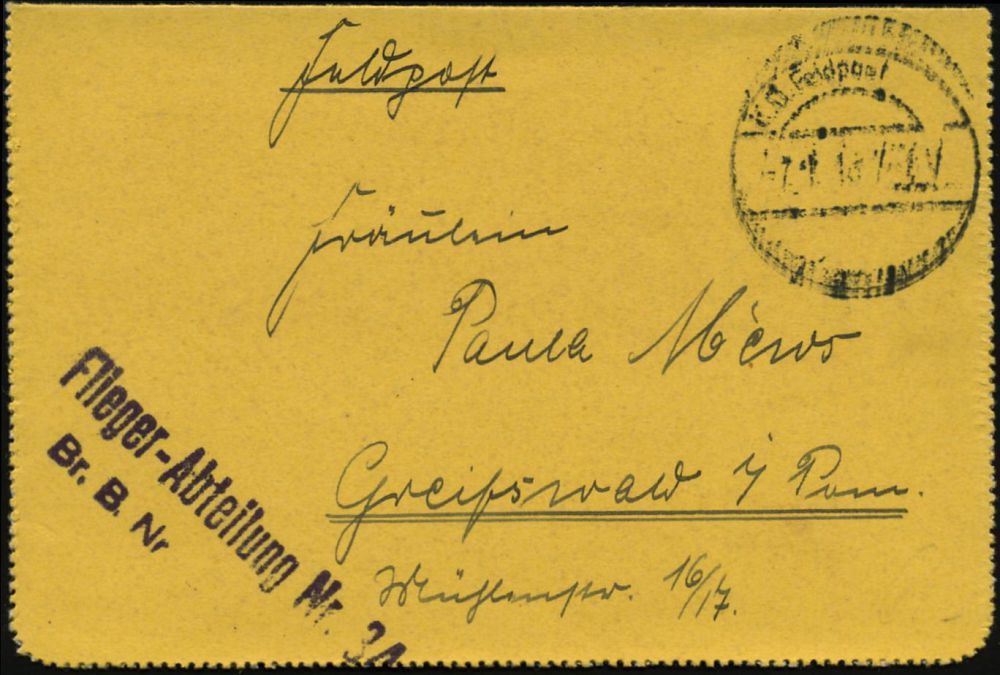 Feldpost
K.D. Feldpost
Fräulein
Paula Mews
Greifswald i/ Pom.
Mühlenstr. 16/17.
Flieger-Abteilung Nr. 34
Br. B. Nr